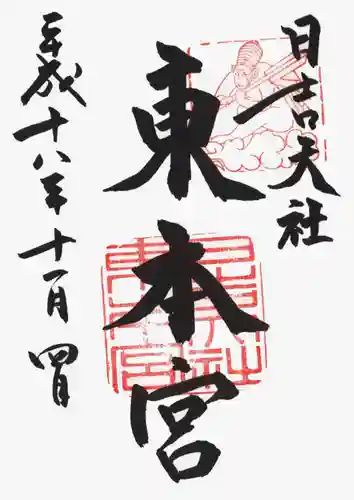 日吉大社
東本宮
平成十八年十一月四日